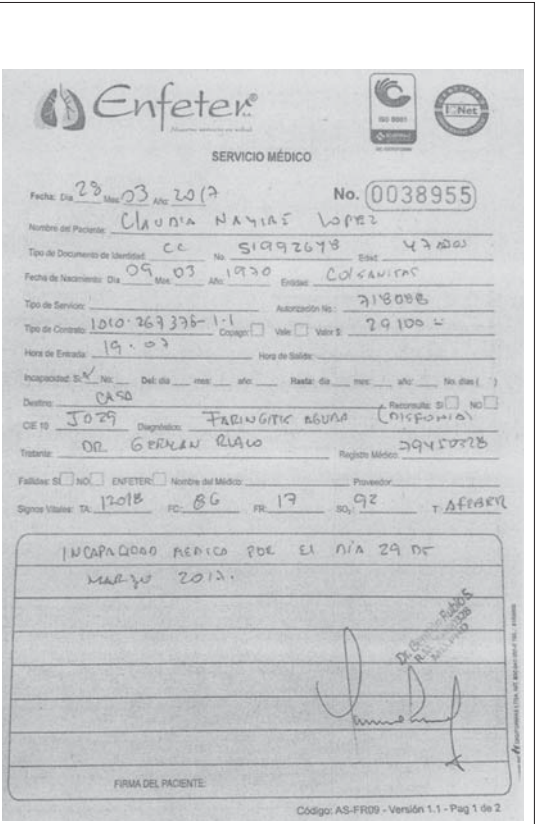 Enfeter
ISO 9001
IQNet
SERVICIO MÉDICO
Fecha: Dia 28 Mes 03 Año 2017 No. 0038955
Nombre del Paciente: CLAUDIA NAYIRÉ LOPEZ
Tipo de Documento de Identidad: CC No. 51992648 Edad: 47 AÑOS
Fecha de Nacimiento: Dia 09 Mes 03 Año 1970 Entidad: COLSANITAS
Tipo de Servicio: Autorización No.: 718088
Tipo de Contrato: 1010-267376-1-1 Copago: Vale: Valor $ 29100
Hora de Entrada: 19.07 Hora de Salida:
Incapacidad: Si: No: Del: dia mes: año: Hasta: dia mes: año: No. dias ( )
Destino: CASA Reconsulta: SI NO
CIE 10: J029 Diagnóstico: FARINGITIS AGUDA (DISFONIA)
Tratante: DR. GERMAN Registro Médico: 79450328
Fallidas: SI NO ENFETER: Nombre del Médico: Proveedor:
Signos Vitales: TA: FC: 86 FR: 17 SO2: 92 T: AFEBRIL
INCAPACIDAD MEDICA POR EL DÍA 29 DE
MARZO 2017.
FIRMA DEL PACIENTE:
Código: AS-FR09 - Versión 1.1 - Pag 1 de 2